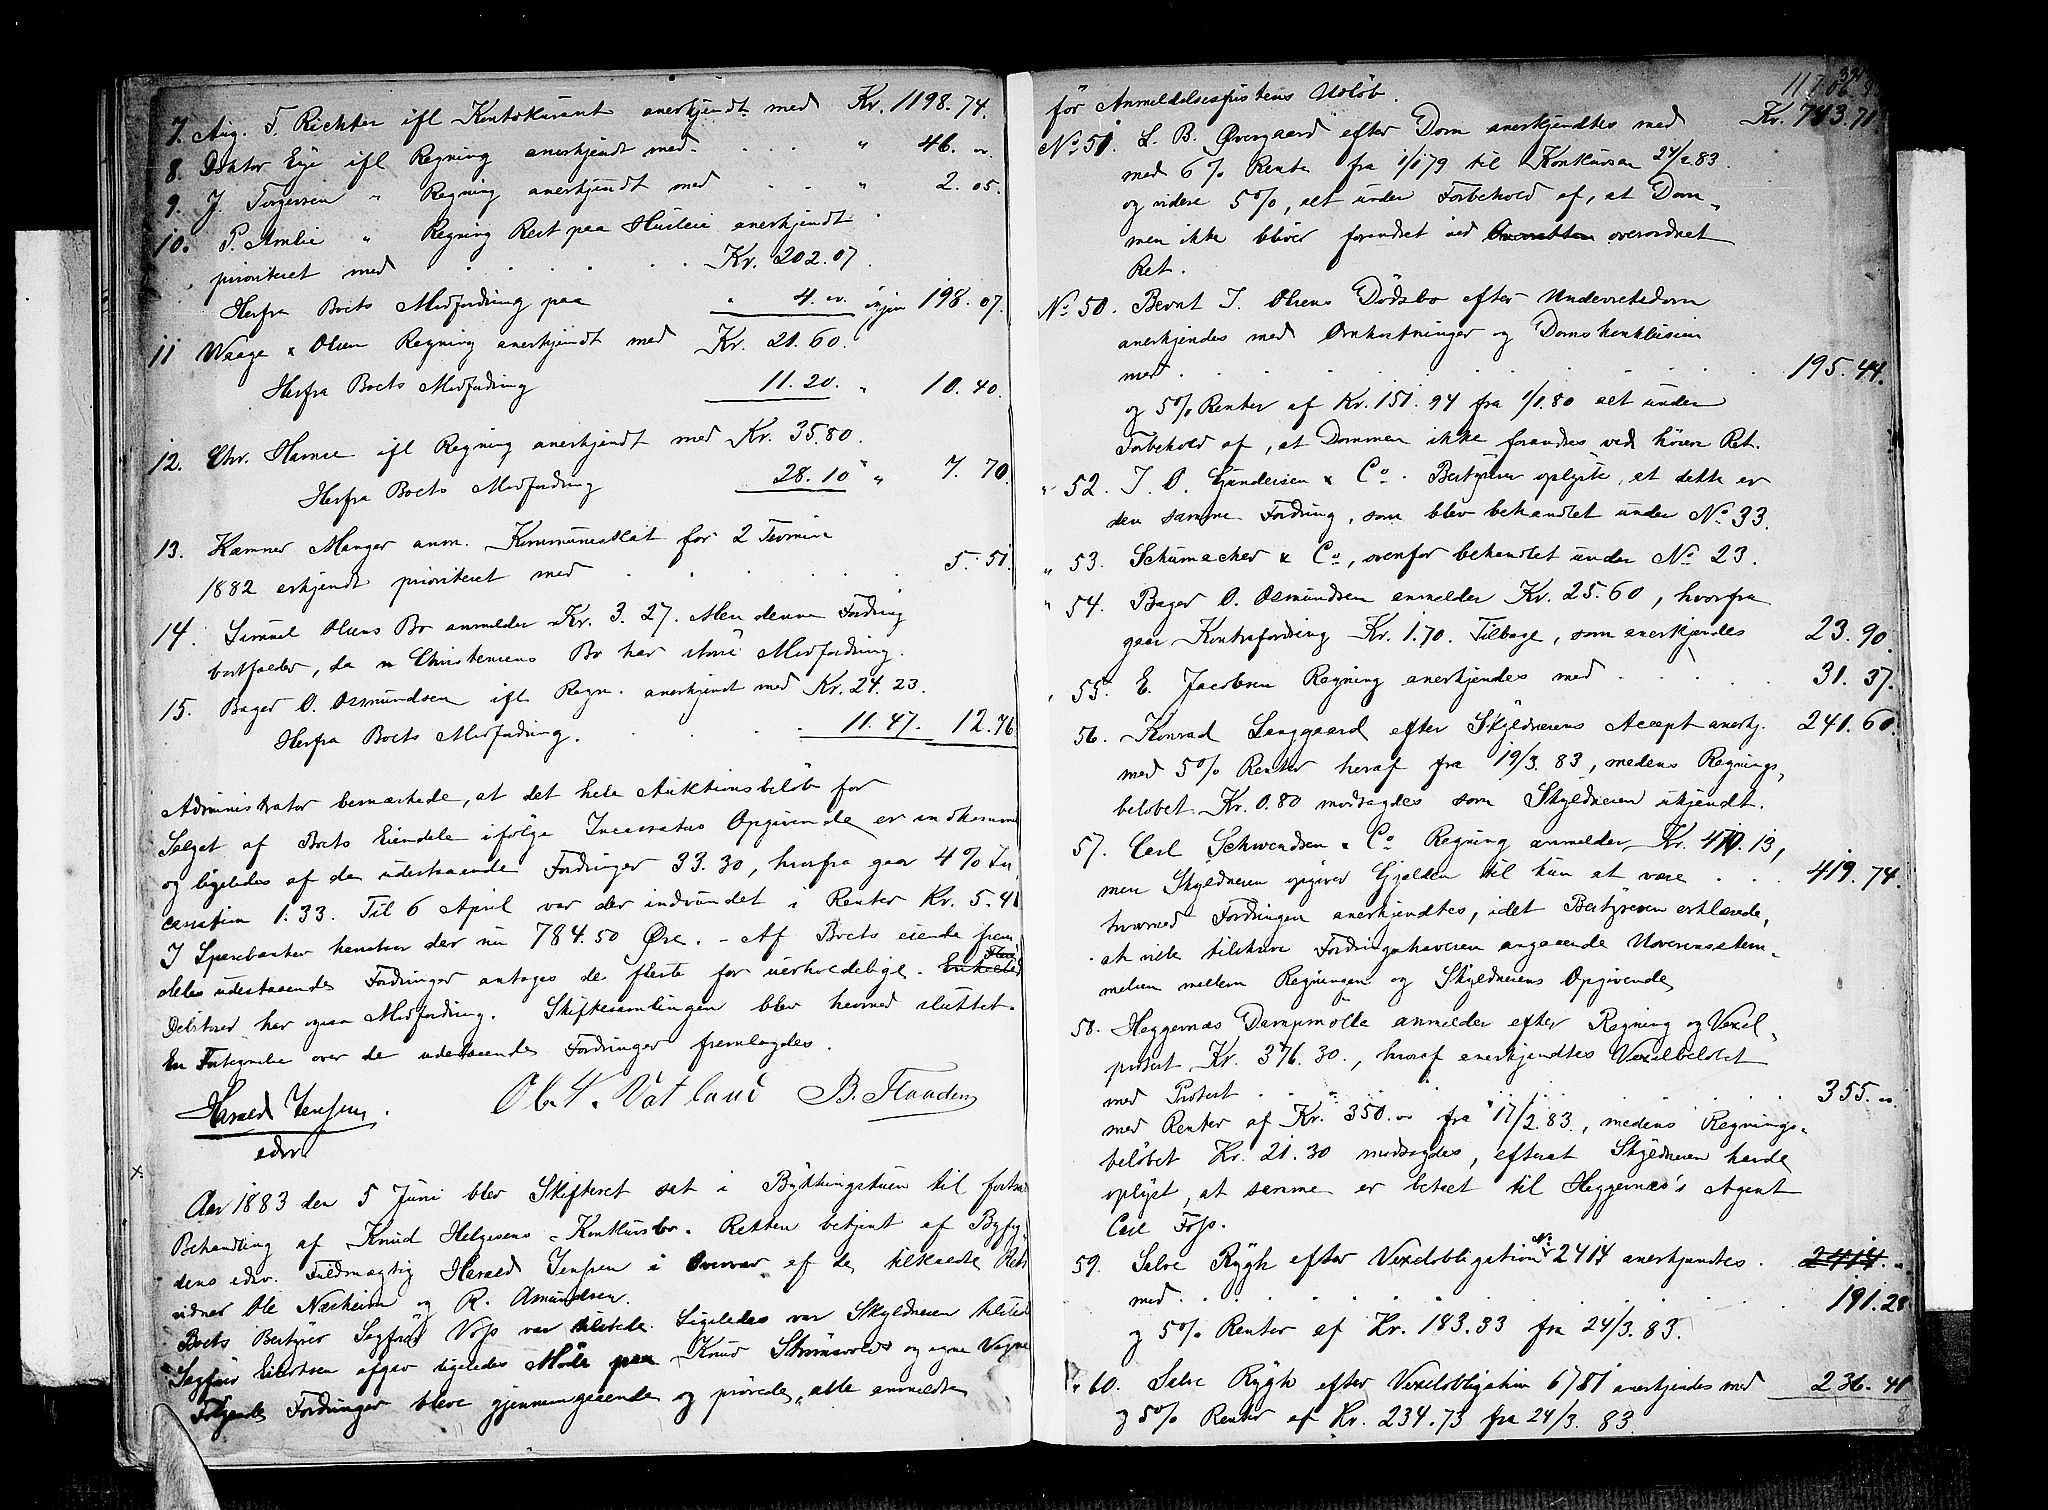 7. Aug. T. Richter ifl Kontokurant anerkjendt med Kr. 1198.74.
8. Doktor Eye ifl Regning anerkjendt med . . . " 46. "
9. J. Torgersen " Regning anerkjendt med . . " 2.05.
10. P. Amlie " Regning Rest paa Husleie anerkjendt
prioriteret med . . . . . . Kr. 202.07.
Herfra Boets Modfordring paa " 4. " igjen 198.07.
11 Waage & Olsen Regning anerkjendt med Kr. 21.60.
Herfra Boets Modfordring 11.20. " 10.40.
12. Chr. Hansen ifl Regning anerkjendt med Kr. 35.80.
Herfra Boets Modfordring 28.10 " 7.70.
13. Kæmner Manger anm. Kommuneskat for 2 Termin
1882 erkjendt prioriteret med . . . . . 5.51.
14. Simmel Olsens Bo anmelder Kr. 3.27. Men denne Fordring
bortfalder, da Christensens Bo har større Modfordring.
15. Bager O. Osmundsen ifl Regn. anerkjendt med Kr. 24.23.
Herfra Boets Modfordring. . . . . 11.47. 12.76
Administrator bemærkede, at det hele Auktionsbeløb for
Salget af Boets Eiendele ifølge Incassators Opgivende er indkommet
og ligeledes af de udestaaende Fordringer 33.30, hvorfra gaar 4% In
cassation 1.33. Til 6 April var der indvundet i Renter Kr. 5.41
I Sparebanken henstaar der nu 784.50 Øre. - Af Boets eiende frem
deles udestaaende Fordringer antages de fleste for uerholdelige. Flere
Debitorer har ogsaa Modfordring. Skiftesamlingen blev hermed sluttet.
En Fortegnelse over de udestaaende Fordringer fremlagdes.
Harald Jensen. Ob. T. Vatland B. Flaaden
edsv
Aar 1883 den 5 Juni blev Skifteret sat i Bythingstuen til fortsat
Behandling af Knud Helgesens Konkursbo. Retten betjent af Byfog
dens edsv. Fuldmægtig Harald Jensen i Overvær af de tilkaldte Rets
vidner Ole Næsheim og R. Amundsen.
Boets Bestyrer Sagfører Voss var tilstede. Ligeledes var Skyldneren tilstede
Sagfører Eilertsen afgav ligeledes Møde paa Knud Strømsvolds og egne Vegne
Følgende Fordringer bleve gjennemgaaende og prøvede, alle anmeldte
för Anmeldelsesfristens Udløb.
No 51. L. B. Øvergaard efter Dom anerkjendtes med Kr. 743.71
med 6% Rente fra 1/1 79 til Konkursen 24/2 83.
og videre 5%, alt under Forbehold af, at Dom-
men ikke bliver forandret ved overordnet
Ret.
No 50. Bernt J. Olsens Dødsbo efter Underretsdom
anerkjendes med Omkostninger og Domskonklusion
med . . . . . . . . . 195.44.
og 5% Renter af Kr. 151.94 fra 1/1.80 alt under
Forbehold af, at Dommen ikke forandres ved høiere Ret.
" 52. J. O. Gundersen & Co. Bestyrer oplyste, at dette er
den samme Fordring, som blev behandlet under No 33.
" 53. Schumacher & Co, ovenfor behandlet under No 23.
" 54. Bager O. Osmundsen anmelder Kr. 25.60, hvorfra
gaar Kontrafordring Kr. 1.70. Tilbage, som anerkjendes 23.90.
" 55. E. Jacobsen Regning anerkjendes med . . . . 31.37.
56. Konrad Langgaard efter Skyldnerens Accept anerkj. 241.60.
med 5% Renter heraf fra 19/3. 83, medens Regnings-
beløbet Kr. 0.80 modsagdes som Skyldneren ukjendt.
57. Carl Schwendsen & Co Regning anmelder Kr. 419.13,
men Skyldneren opgiver Gjælden til kun at være . . . 419.74.
hvormed Fordringen anerkjendtes, idet Bestyreren erklærede,
at ville tilskrive Fordringshaveren angaaende Uoverensstem-
melsen mellem Regningen og Skyldnerens Opgivende
58. Heggernæs Dampmølle anmelder efter Regning og Vexel-
protest Kr. 376.30., hvoraf anerkjendtes Vexelbeløbet
med Protest . . . . . . . . 355. "
med Renter af Kr. 350. " fra 17/2.83, medens Regnings-
beløbet Kr. 21.30 modsagdes, efterat Skyldneren havde
oplyst, at samme er betalt til Heggernæs's Agent
Carl Foss.
59. Salve Rygh efter Vexelobligation No 2414 anerkjendtes . 2414.
med . . . . . . . . . 191.28
og 5% Renter af Kr. 183.33 fra 24/3.83.
" 60. Salve Rygh efter Vexelobligation 6781 anerkjendes med 236.41
og 5% Renter af Kr. 234.73 fra 24/3. 83.